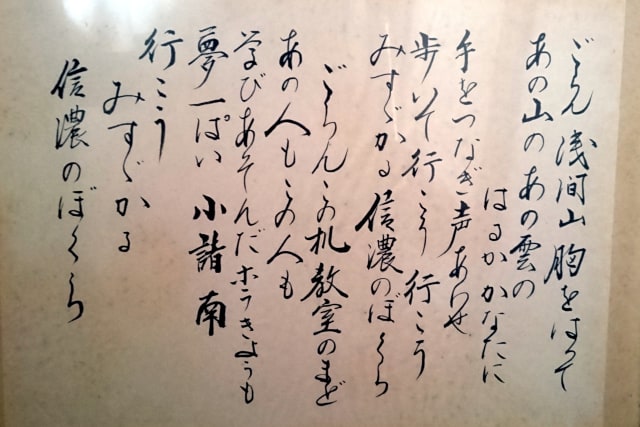 ごらん 浅間山 胸をはって
あの山の あの雲の
はるかかなたに
手をつなぎ 声あわせ
歩いて行こう 行こう
みすゞかる 信濃のぼくら
ごらん この机 教室のまど
あの人も この人も
学びあそんだ ホラきょうも
夢一ぱい 小諸南
行こう
みすゞかる
信濃のぼくら